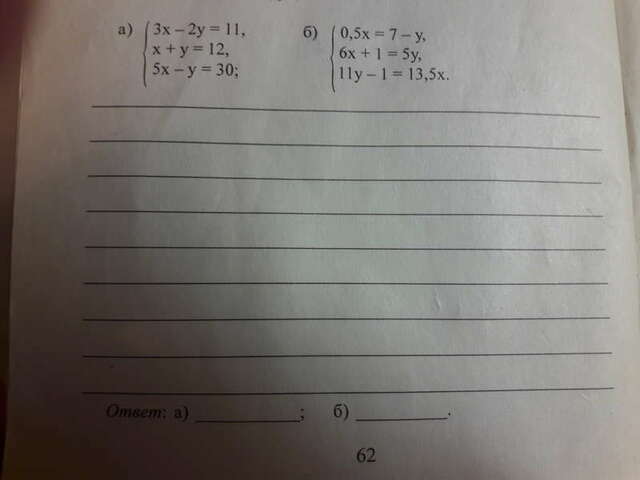 а) 3x – 2y = 11,
x + y = 12,
5x – y = 30;
б) 0,5x = 7 – y,
6x + 1 = 5y,
11y – 1 = 13,5x.
Ответ: а) ___________; б) __________.
62